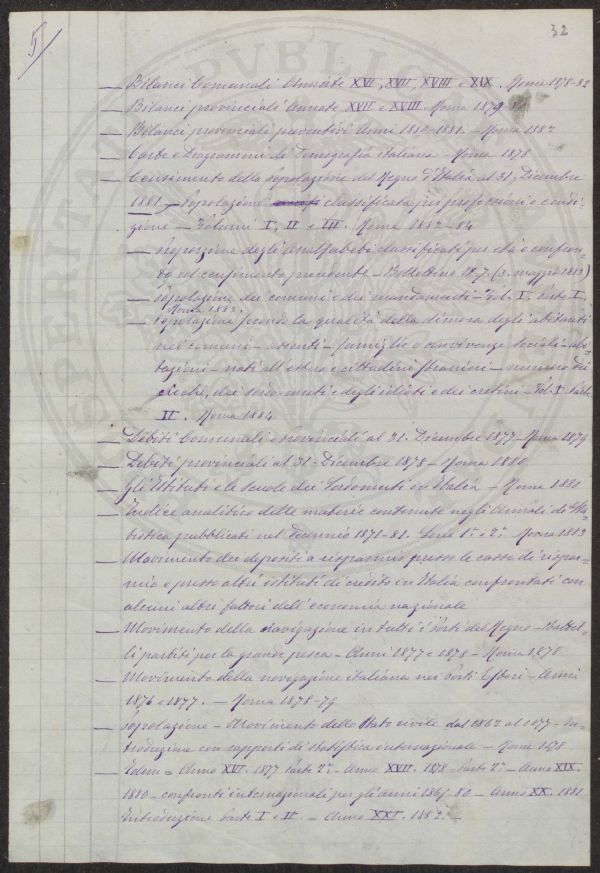 5/
32
— Bilanci Comunali Annate XVI, XVII, XVIII e XIX. Roma 1878-82
— Bilanci provinciali Annate XVII e XVIII Roma 1879-
— Bilanci provinciali preventivi Anni 1880-1881. — Roma 1882
— Carte e Diagrammi di Demografia italiana — Roma 1878
— Censimento della popolazione del Regno d'Italia al 31. Dicembre
1881 — Popolazione classificata per professioni e condi-
zione — Volumi I, II e III. Roma 1882-84
— Proporzione degli analfabeti classificati per età e confron-
to col censimento precedente — Bollettino N. 7. (3. maggio 1883)
— Popolazione dei comuni e dei mandamenti — Vol. I. Parte I.
Roma 1883.
— Popolazione secondo la qualità della dimora degli abitanti
nei comuni — assenti — famiglie e convivenze sociali — abi-
tazioni — nati all'estero e cittadini stranieri — numero dei
ciechi, dei sordo-muti e degli idioti e dei cretini — Vol. I. Parte
II. Roma 1884
— Debiti Comunali e Provinciali al 31. Dicembre 1877 — Roma 1879
— Debiti provinciali al 31. Dicembre 1878 — Roma 1880
— Gli Istituti e le scuole dei Sordomuti in Italia — Roma 1880
— Indice analitico delle materie contenute negli Annali di Sta-
tistica pubblicati nel decennio 1871-81. Serie 1ª e 2ª Roma 1883
— Movimento dei depositi a risparmio presso le casse di rispar-
mio e presso altri istituti di credito in Italia confrontati con
alcuni altri fattori dell'economia nazionale
— Movimento della Navigazione in tutti i Porti del Regno — Battel-
li partiti per la grande pesca — Anni 1877 e 1878 — Roma 1878
— Movimento della navigazione italiana nei Porti Esteri — Anni
1876 e 1877. — Roma 1878-79
— Popolazione — Movimento dello Stato civile dal 1862 al 1877 — In-
troduzione con rapporti di statistica internazionale — Roma 1878
— Idem = Anno XVI. 1877 Parte 2ª — Anno XVII. 1878 — Parte 2ª — Anno XIX.
1880 — confronti internazionali per gli anni 1865-80 — Anno XX. 1881
Introduzione Parte I e II. — Anno XXI. 1882. —